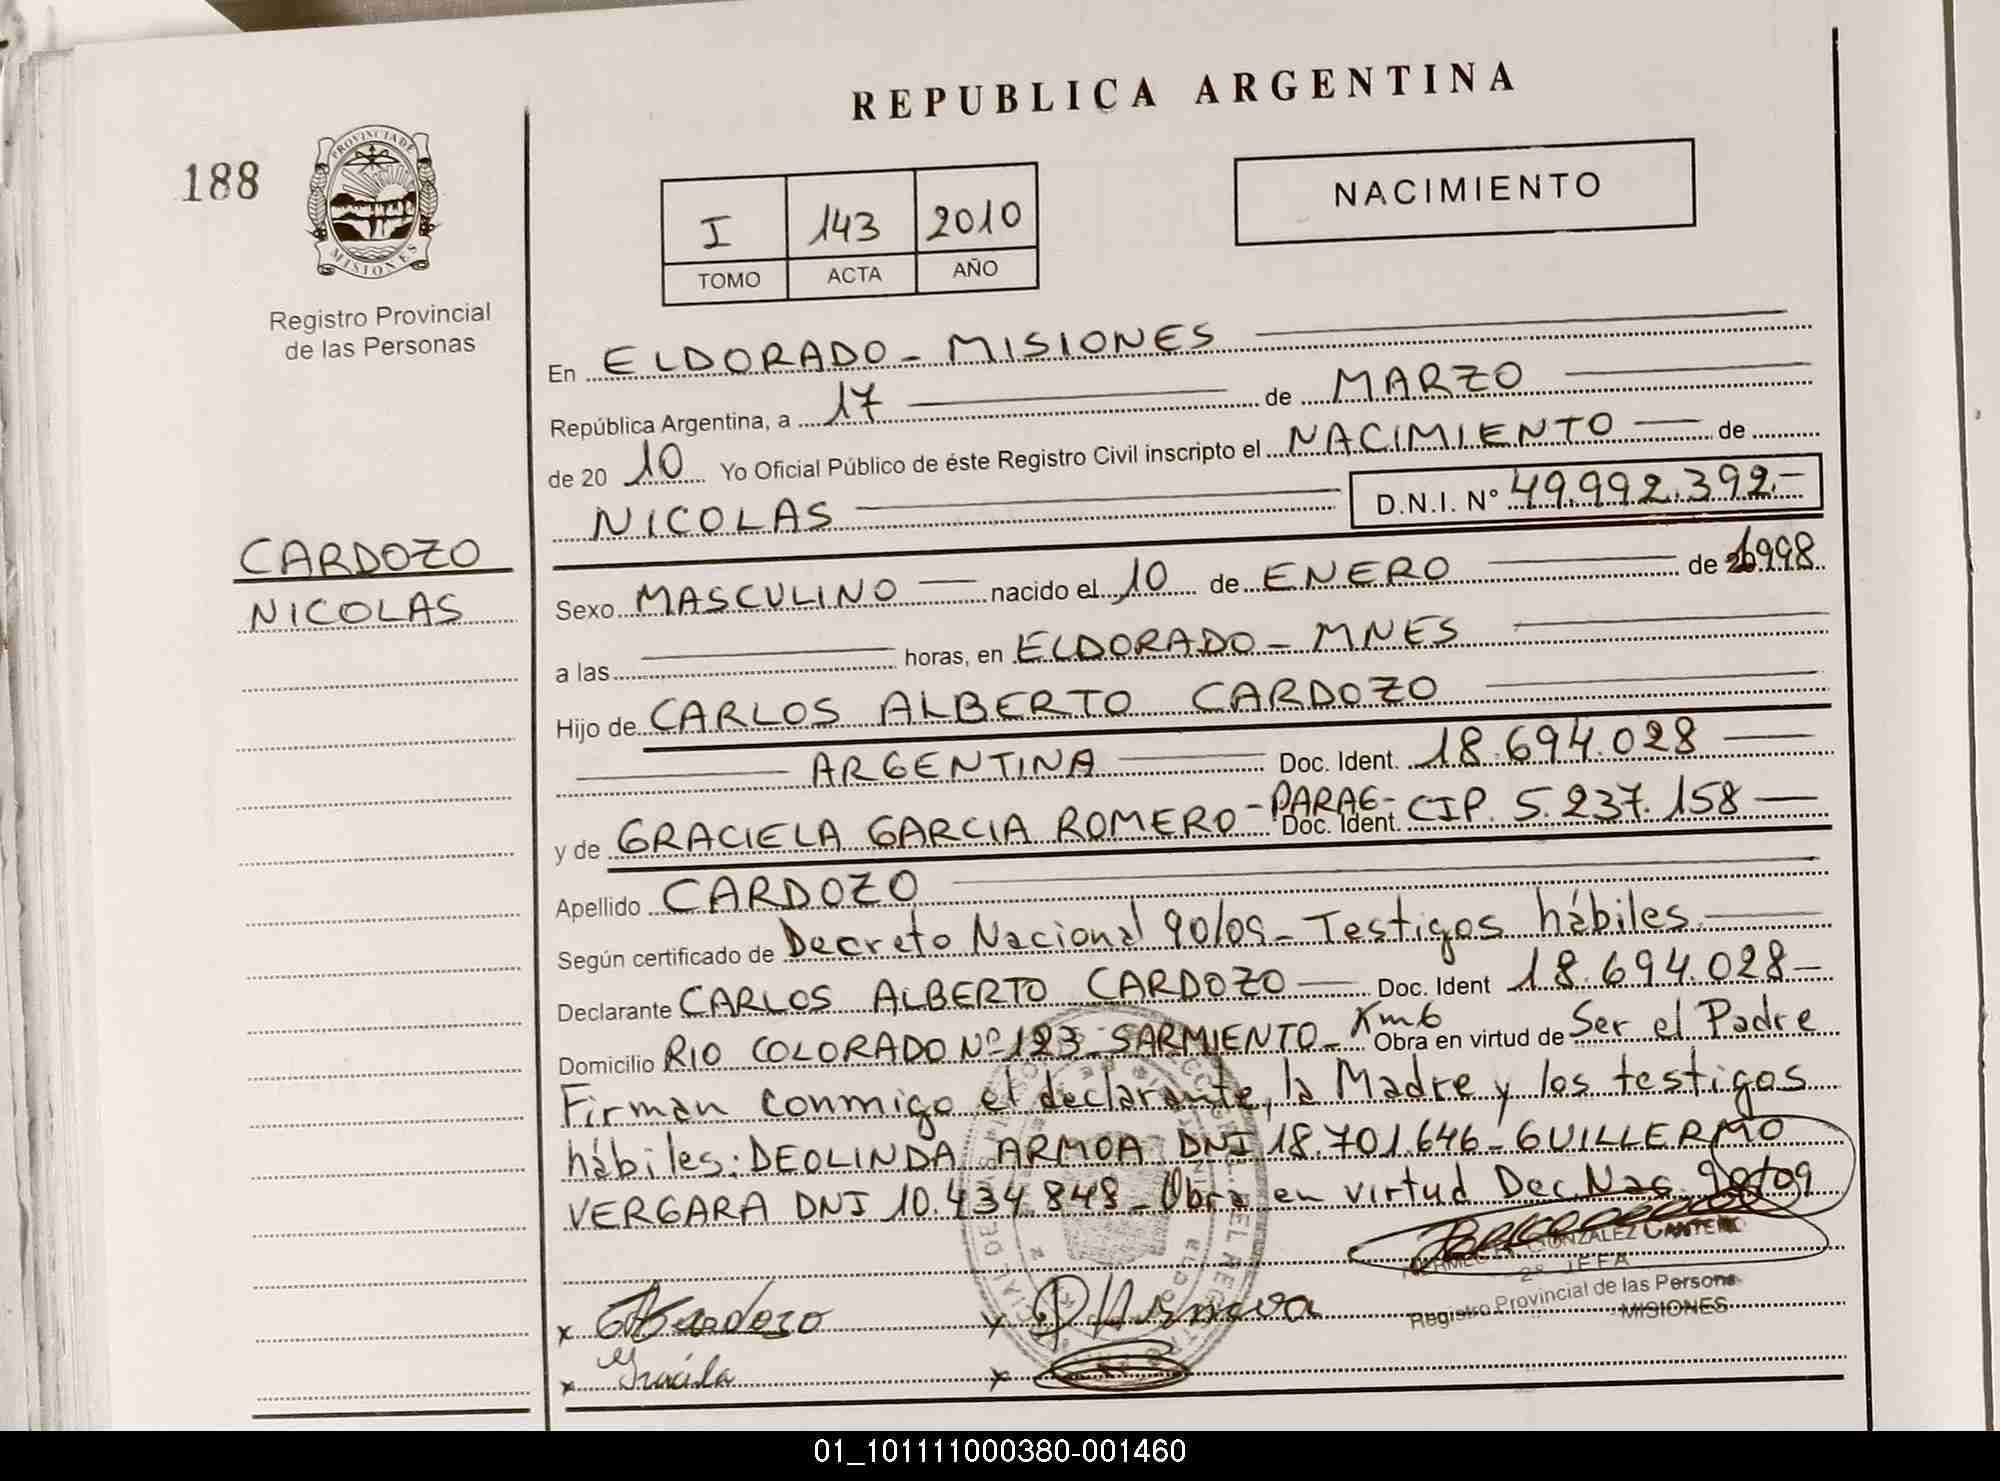 REPUBLICA ARGENTINA
188
PROVINCIA DE
MISIONES
Registro Provincial
de las Personas
I 143 2010
TOMO ACTA AÑO
NACIMIENTO
En ELDORADO - MISIONES
República Argentina, a 17 de MARZO
de 20 10 Yo Oficial Público de éste Registro Civil inscripto el NACIMIENTO de
NICOLAS D.N.I. N° 49.992.392.-
CARDOZO
NICOLAS
Sexo MASCULINO nacido el 10 de ENERO de 1998
a las horas, en ELDORADO - MNES
Hijo de CARLOS ALBERTO CARDOZO
ARGENTINA Doc. Ident. 18.694.028
y de GRACIELA GARCIA ROMERO - PARAG - Doc. Ident. CIP. 5.237.158
Apellido CARDOZO
Según certificado de Decreto Nacional 90/09 - Testigos hábiles.
Declarante CARLOS ALBERTO CARDOZO Doc. Ident 18.694.028
Domicilio RIO COLORADO Nº 123 - SARMIENTO - Km6 Obra en virtud de Ser el Padre
Firman conmigo el declarante, la Madre y los testigos
hábiles: DEOLINDA ARMOA DNI 18.701.646 - GUILLERMO
VERGARA DNI 10.434.848 - Obra en virtud Dec. Nac. 90/09
GONZALEZ CANTERO
2ª JEFA
Registro Provincial de las Persona
MISIONES
x Cardozo x
x x
01_101111000380-001460